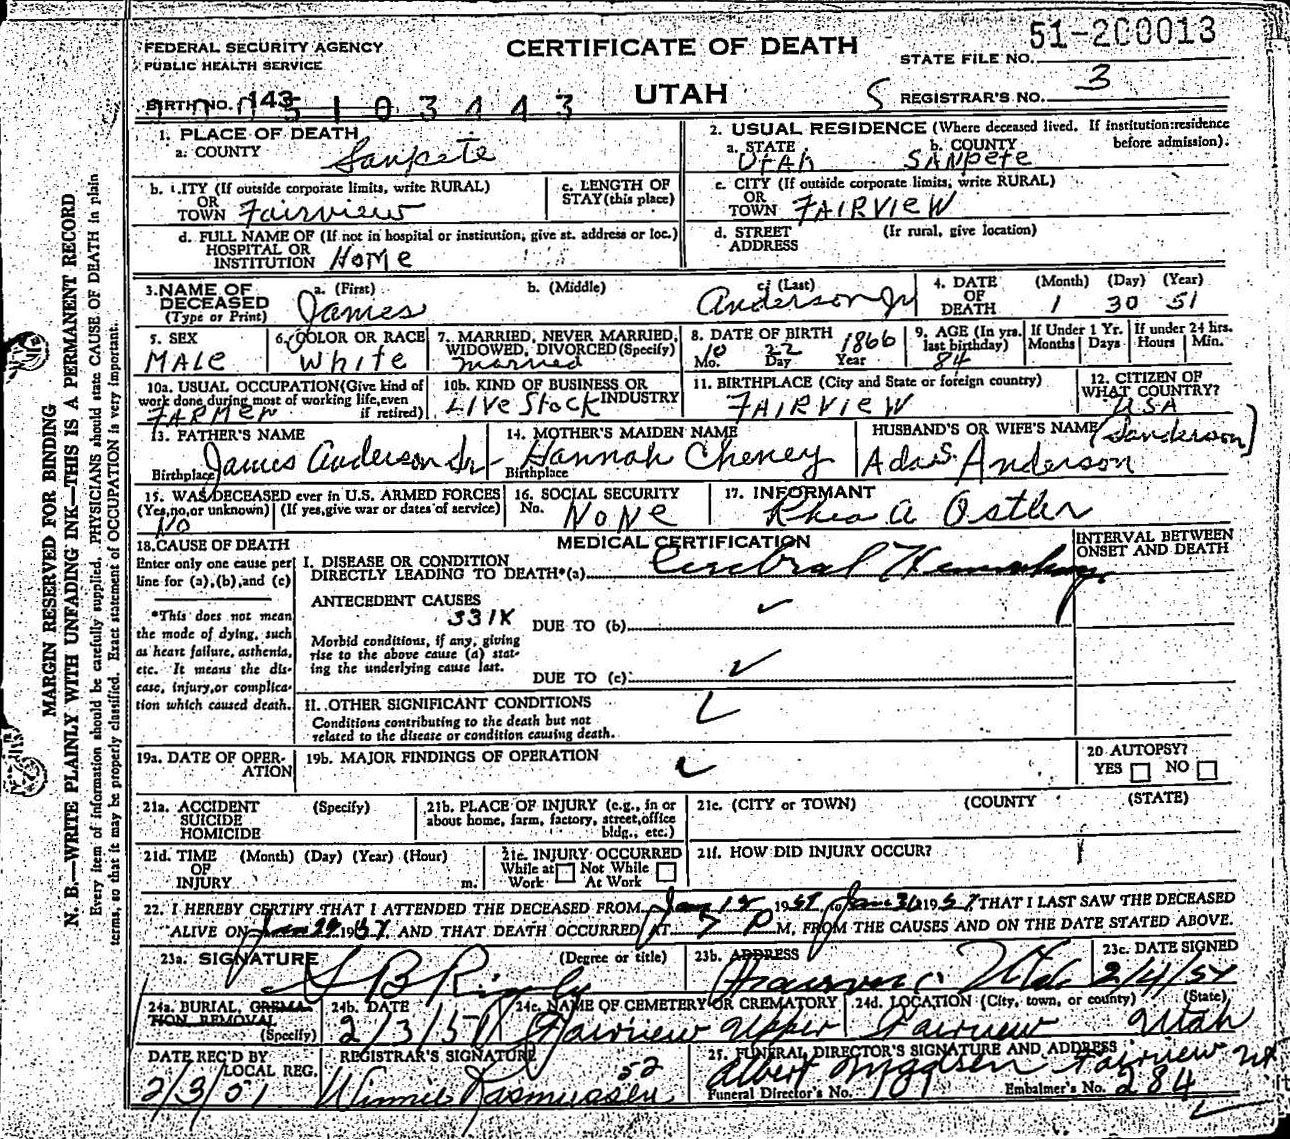 51-200013
FEDERAL SECURITY AGENCY
PUBLIC HEALTH SERVICE
CERTIFICATE OF DEATH
STATE FILE NO.
UTAH
S REGISTRAR'S NO. 3
BIRTH NO. 143
5 1 0 3 4 4 3
1. PLACE OF DEATH
a. COUNTY Sanpete
2. USUAL RESIDENCE (Where deceased lived. If institution: residence before admission).
a. STATE UTAH b. COUNTY SANpete
b. CITY (If outside corporate limits, write RURAL)
OR
TOWN Fairview
c. LENGTH OF
STAY (this place)
c. CITY (If outside corporate limits, write RURAL)
OR
TOWN FAIRVIEW
d. FULL NAME OF (If not in hospital or institution, give st. address or loc.)
HOSPITAL OR
INSTITUTION Home
d. STREET (Ir rural, give location)
ADDRESS
3. NAME OF DECEASED
(Type or Print)
a. (First) James
b. (Middle)
c. (Last) Anderson Jr
4. DATE OF DEATH
(Month) (Day) (Year)
1 30 51
5. SEX
MALE
6. COLOR OR RACE
White
7. MARRIED, NEVER MARRIED,
WIDOWED, DIVORCED (Specify)
Married
8. DATE OF BIRTH
10 22 1866
Mo. Day Year
9. AGE (In yrs. last birthday)
84
If Under 1 Yr.
Months Days
If under 24 hrs.
Hours Min.
10a. USUAL OCCUPATION (Give kind of
work done during most of working life, even
if retired)
FARMER
10b. KIND OF BUSINESS OR
INDUSTRY
LIVE Stock
11. BIRTHPLACE (City and State or foreign country)
FAIRVIEW
12. CITIZEN OF
WHAT COUNTRY?
USA
13. FATHER'S NAME
James Anderson Sr
Birthplace
14. MOTHER'S MAIDEN NAME
Hannah Cheney
Birthplace
HUSBAND'S OR WIFE'S NAME (Sanderson)
Ada S. Anderson
15. WAS DECEASED ever in U.S. ARMED FORCES
(Yes, no, or unknown) (If yes, give war or dates of service)
No
16. SOCIAL SECURITY
No. NONE
17. INFORMANT
Rhea A Ostler
18. CAUSE OF DEATH
Enter only one cause per
line for (a), (b), and (c)
*This does not mean
the mode of dying, such
as heart failure, asthenia,
etc. It means the dis-
ease, injury, or complica-
tion which caused death.
MEDICAL CERTIFICATION
INTERVAL BETWEEN
ONSET AND DEATH
I. DISEASE OR CONDITION
DIRECTLY LEADING TO DEATH*(a) Cerebral Hemorrhage
ANTECEDENT CAUSES
331X
DUE TO (b)
Morbid conditions, if any, giving
rise to the above cause (a) stat-
ing the underlying cause last.
DUE TO (c)
II. OTHER SIGNIFICANT CONDITIONS
Conditions contributing to the death but not
related to the disease or condition causing death.
19a. DATE OF OPER-
ATION
19b. MAJOR FINDINGS OF OPERATION
20 AUTOPSY?
YES NO
21a. ACCIDENT (Specify)
SUICIDE
HOMICIDE
21b. PLACE OF INJURY (e.g., in or
about home, farm, factory, street, office
bldg., etc.)
21c. (CITY or TOWN) (COUNTY (STATE)
21d. TIME (Month) (Day) (Year) (Hour)
OF
INJURY m.
21e. INJURY OCCURRED
While at Not While
Work At Work
21f. HOW DID INJURY OCCUR?
22. I HEREBY CERTIFY THAT I ATTENDED THE DECEASED FROM Jan 19 TO Jan 19 THAT I LAST SAW THE DECEASED
ALIVE ON Jan 29 19 AND THAT DEATH OCCURRED AT 7 P M, FROM THE CAUSES AND ON THE DATE STATED ABOVE.
23a. SIGNATURE (Degree or title)
23b. ADDRESS
Fairview Utah
23c. DATE SIGNED
24a. BURIAL, CREMA-
TION, REMOVAL
(Specify)
24b. DATE
2/3/51
24c. NAME OF CEMETERY OR CREMATORY
Fairview Upper
24d. LOCATION (City, town, or county) (State)
Fairview Utah
DATE REC'D BY
LOCAL REG.
2/3/51
REGISTRAR'S SIGNATURE
Winnie Rasmussen
52
25. FUNERAL DIRECTOR'S SIGNATURE AND ADDRESS
Albert Fairview Ut
Funeral Director's No. 101 Embalmer's No. 284
MARGIN RESERVED FOR BINDING
N. B.—WRITE PLAINLY WITH UNFADING INK—THIS IS A PERMANENT RECORD
Every item of information should be carefully supplied. PHYSICIANS should state CAUSE OF DEATH in plain
terms, so that it may be properly classified. Exact statement of OCCUPATION is very important.